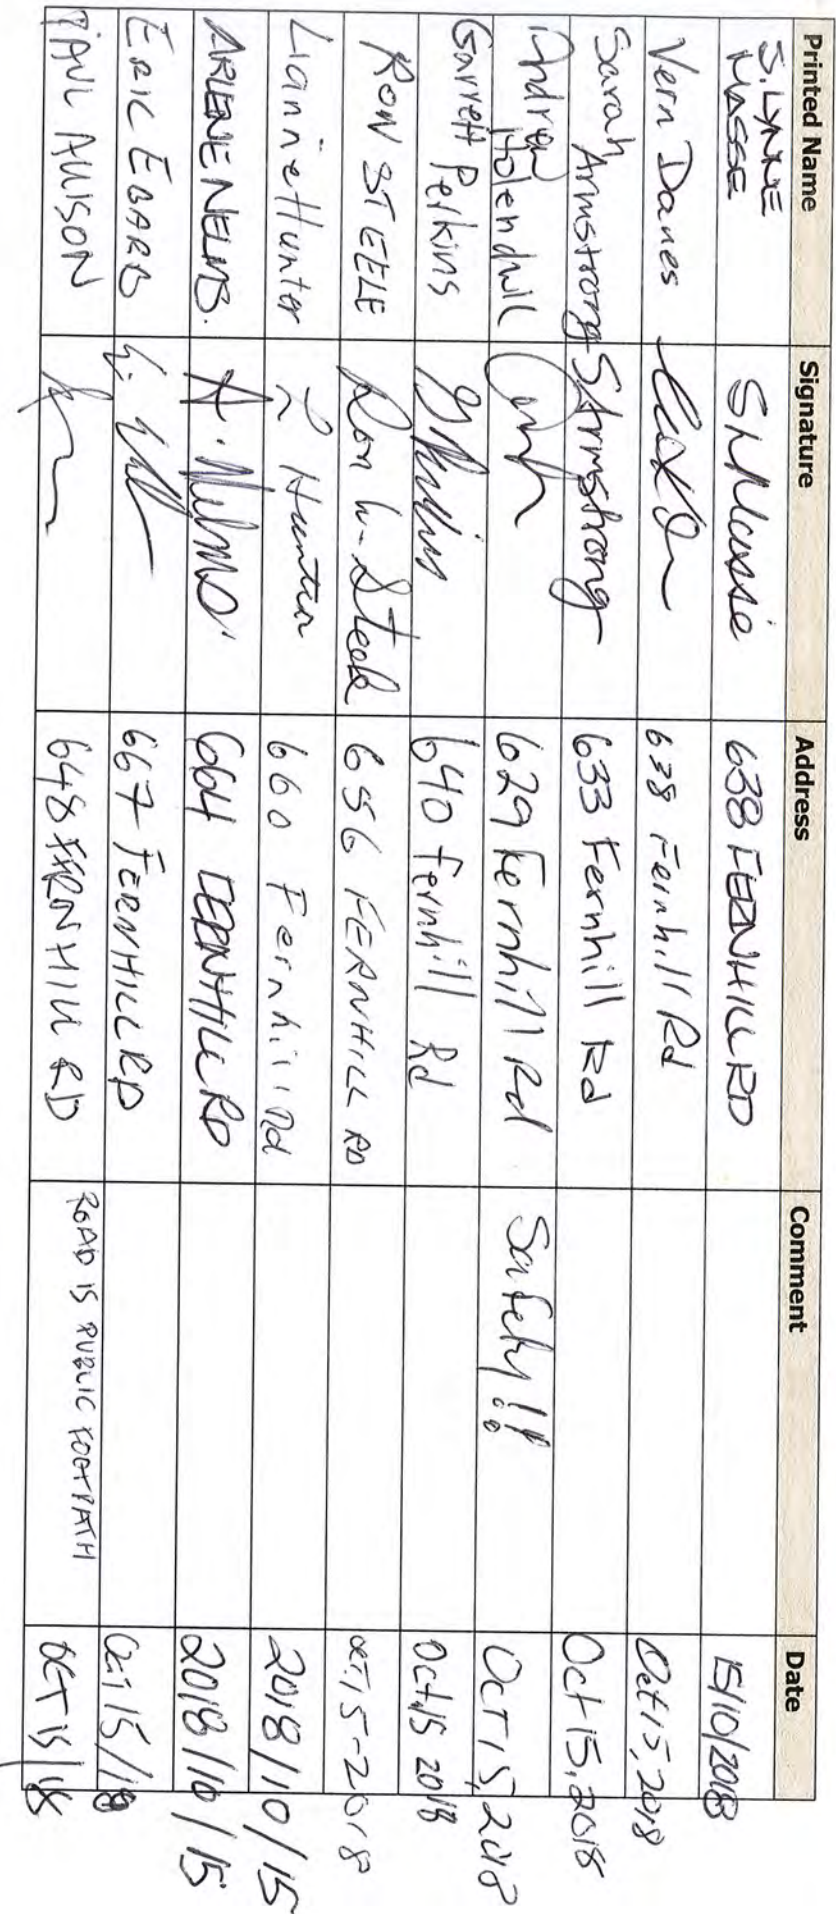 Printed Name Signature Address Comment Date
S. LYNNE MASSE S M Masse 638 FERNHILL RD 15/10/2018
Vern Davies 638 Fernhill Rd Oct 15, 2018
Sarah Armstrong SArmstrong 633 Fernhill Rd Oct 15, 2018
Andrew 629 Fernhill Rd Safety!! OCT 15, 2018
Garrett Perkins 640 Fernhill Rd Oct 15 2018
RON STEELE Ron W. Steele 656 FERNHILL RD OCT 15-2018
Lianne Hunter L Hunter 660 Fernhill Rd 2018/10/15
ARLENE NELMS. A. Nelms. 664 FERNHILL RD 2018/10/15
ERIC EBARB 667 FERNHILL RD Oct 15/18
PAUL ALLISON 648 FERNHILL RD ROAD IS PUBLIC FOOTPATH OCT 15/18